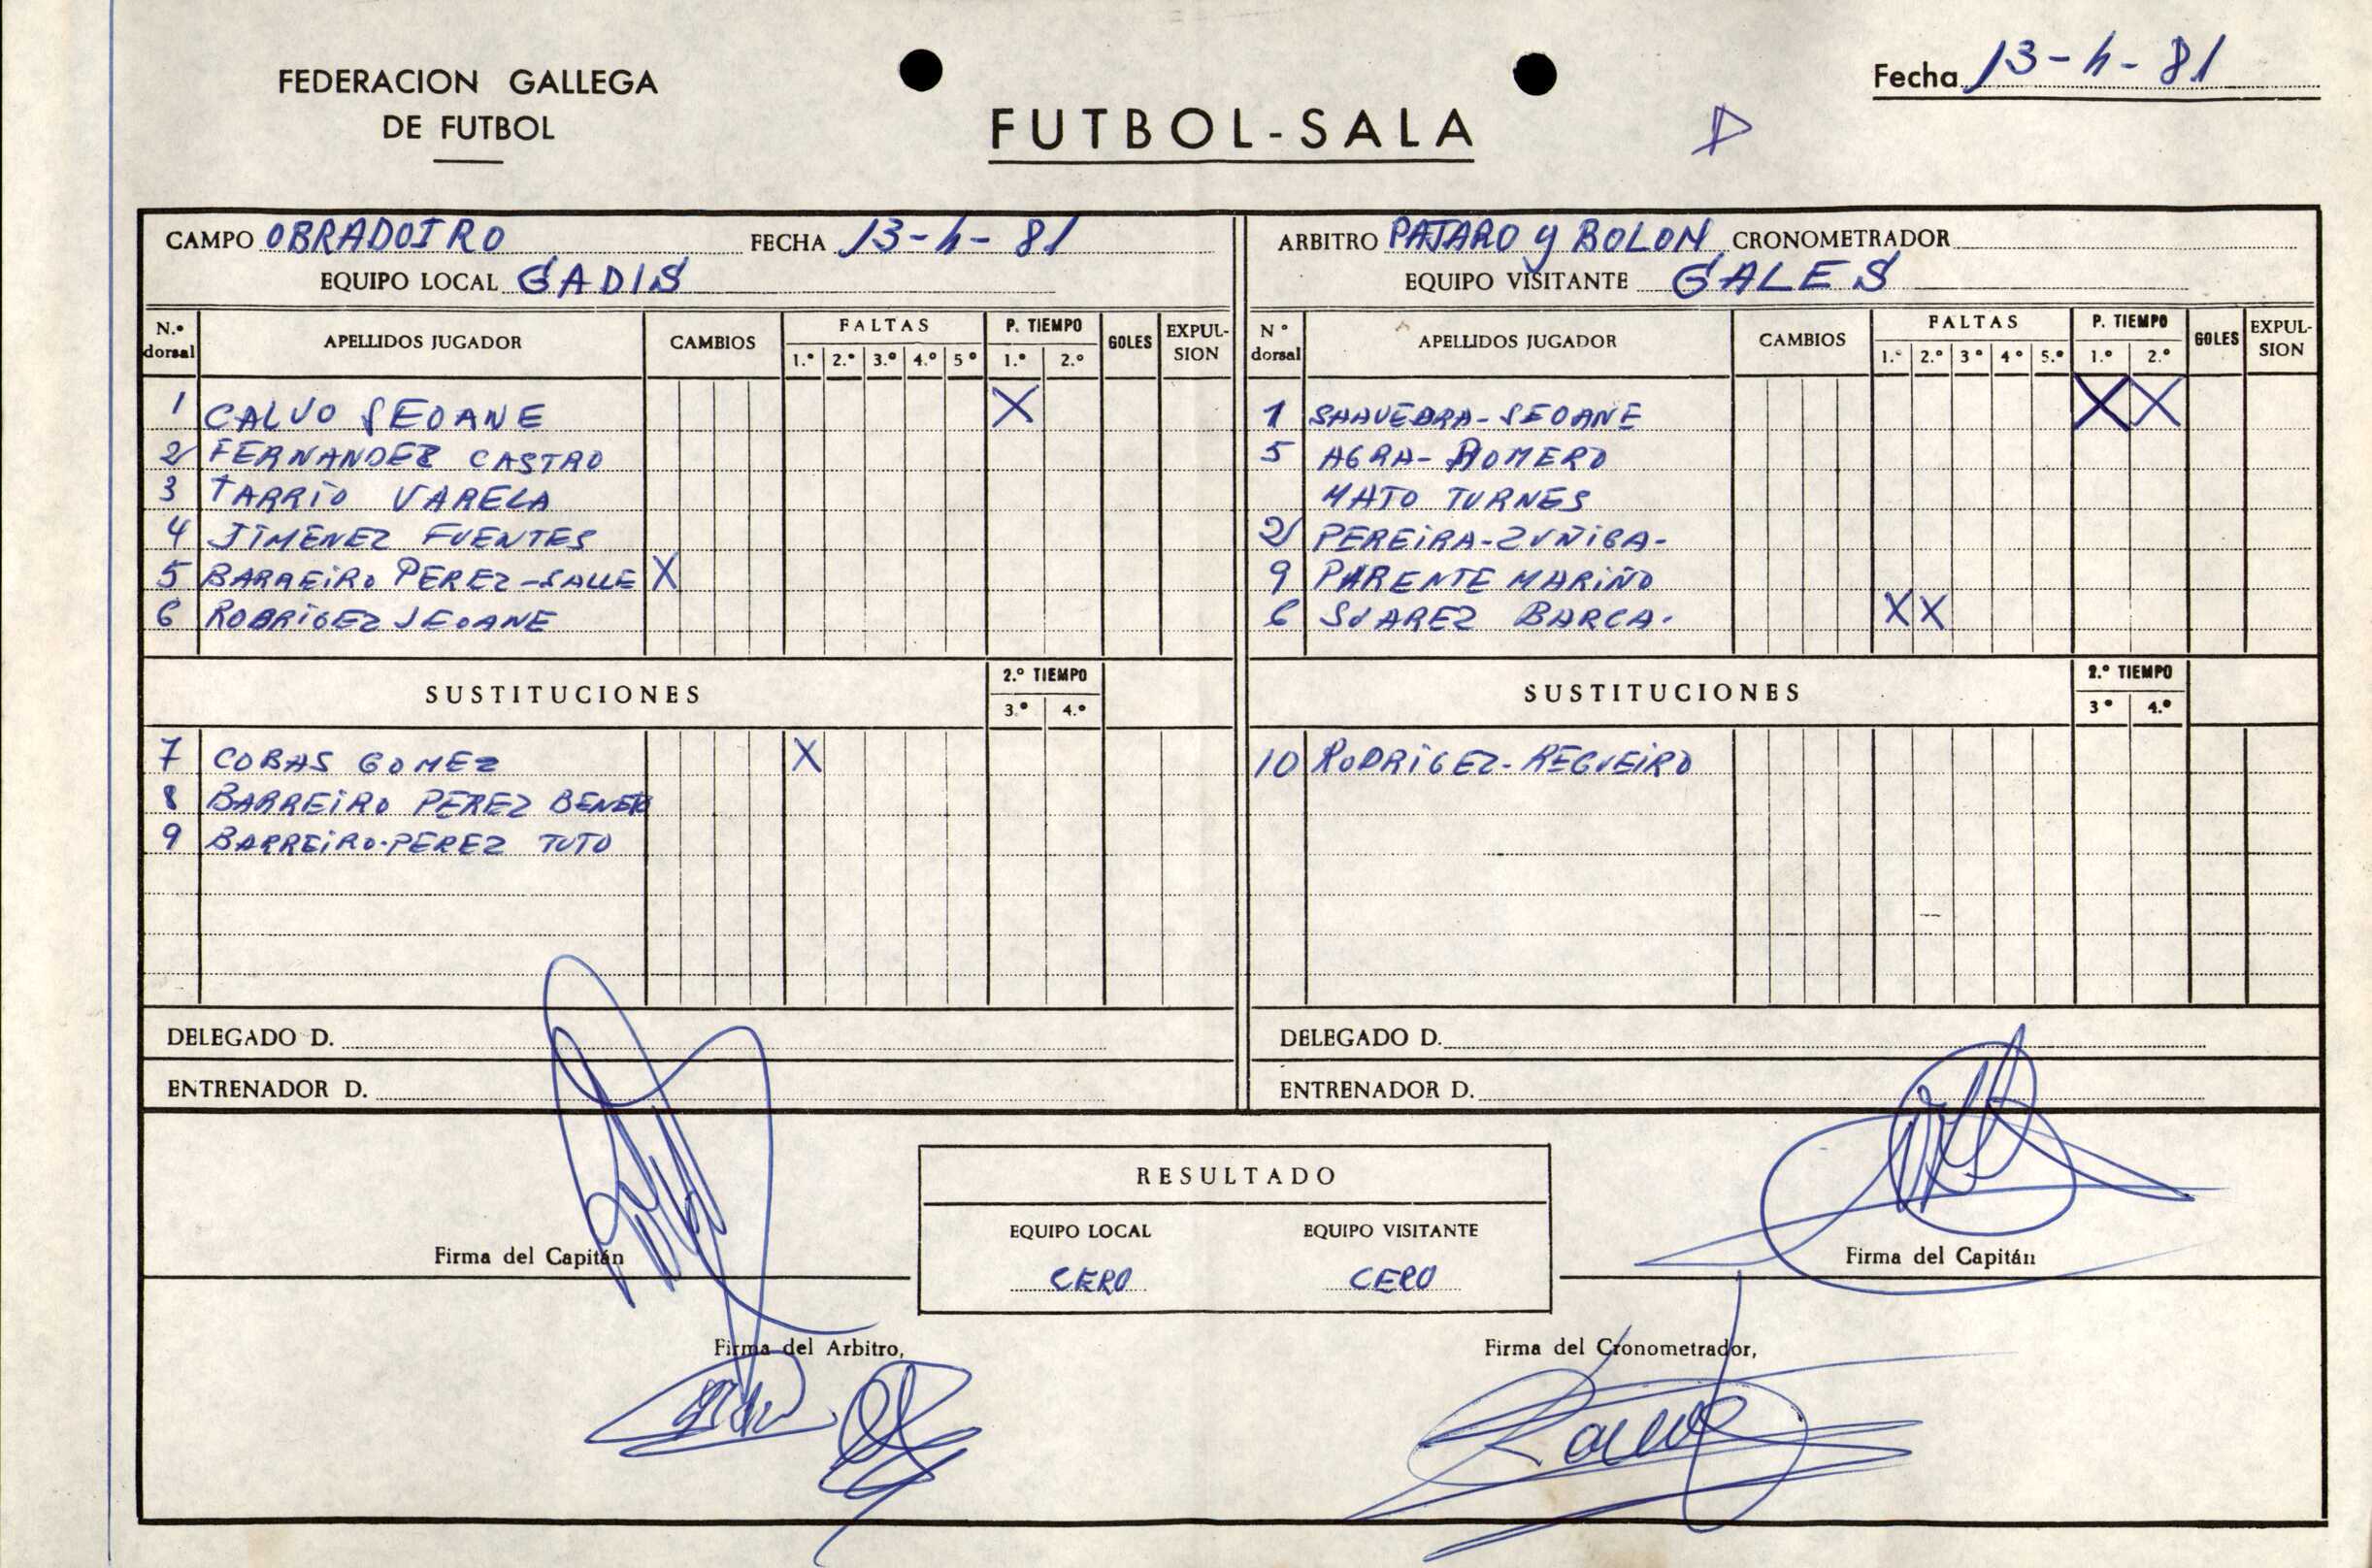 FEDERACION GALLEGA
DE FUTBOL
FUTBOL-SALA
Fecha 13-4-81
CAMPO OBRADOIRO FECHA 13-4-81
EQUIPO LOCAL GADIS
N.º dorsal APELLIDOS JUGADOR CAMBIOS FALTAS 1.º 2.º 3.º 4.º 5º P. TIEMPO 1.º 2.º GOLES EXPULSION
1 CALVO SEOANE X
2 FERNANDEZ CASTRO
3 TARRIO VARELA
4 JIMENEZ FUENTES
5 BARREIRO PEREZ-SALLE X
6 RODRIGEZ SEOANE
SUSTITUCIONES 2.º TIEMPO 3.º 4.º
7 COBAS GOMEZ X
8 BARREIRO PEREZ
9 BARREIRO-PEREZ TUTO
DELEGADO D.
ENTRENADOR D.
ARBITRO PAJARO Y BOLON CRONOMETRADOR
EQUIPO VISITANTE GALES
N º dorsal APELLIDOS JUGADOR CAMBIOS FALTAS 1.º 2.º 3º 4º 5.º P. TIEMPO 1.º 2.º GOLES EXPULSION
1 SAAVEDRA-SEOANE X X
5 AGRA-ROMERO
MATO TURNES
2 PEREIRA-ZUÑIGA-
9 PARENTE MARIÑO
6 SUAREZ BARCA. X X
SUSTITUCIONES 2.º TIEMPO 3º 4.º
10 RODRIGEZ-REGUEIRO
DELEGADO D.
ENTRENADOR D.
RESULTADO
EQUIPO LOCAL EQUIPO VISITANTE
CERO CERO
Firma del Capitán
Firma del Capitán
Firma del Arbitro,
Firma del Cronometrador,